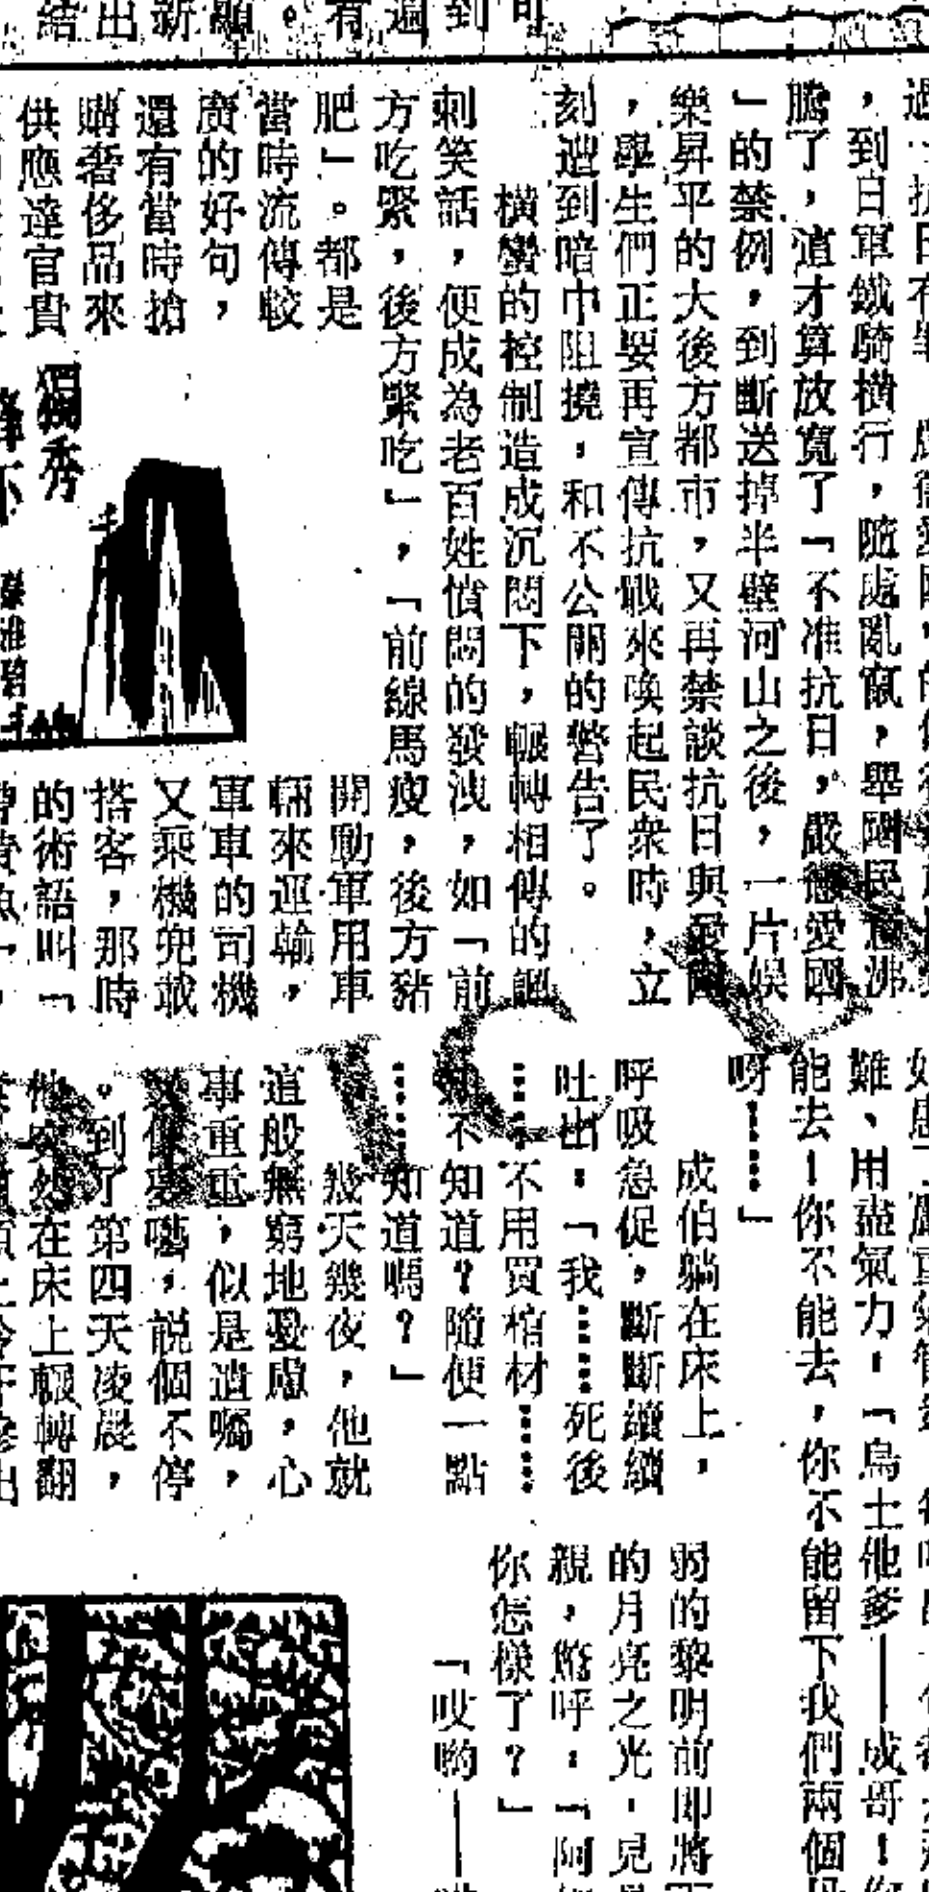 ，到日軍鐵騎橫行，隨處亂竄，舉國民意沸
騰了，這才算放寬了「不准抗日，嚴懲愛國
」的禁例，到斷送掉半壁河山之後，一片娛
樂昇平的大後方都市，又再禁談抗日與愛國
，學生們正要再宣傳抗戰來喚起民衆時，立
刻遭到暗中阻撓，和不公開的警告了。
橫蠻的控制造成沉悶下，輾轉相傳的諷
刺笑話，便成為老百姓憤悶的發洩，如「前
方吃緊，後方緊吃」，「前線馬瘦，後方豬
肥」。都是
當時流傳較
廣的好句，
還有當時搶
購奢侈品來
供應達官貴
獨秀
開動軍用車
輛來運輸，
軍車的司機
又乘機兜載
搭客，那時
的術語叫「
難、用盡氣力，「烏土他爹——成哥！
能去！你不能去，你不能留下我們兩個
呀……」
成伯躺在床上，
呼吸急促，斷斷續續
吐出：「我……死後
……不用買棺材……
知不知道？隨便一點
……知道嗎？」
幾天幾夜，他就
這般無窮地憂慮，心
事重重，似是遺囑，
又似夢囈，説個不停
。到了第四天凌晨，
他突然在床上輾轉翻
弱的黎明前即將
的月亮之光，見
親，驚呼：「阿
你怎樣了？」
「哎喲——